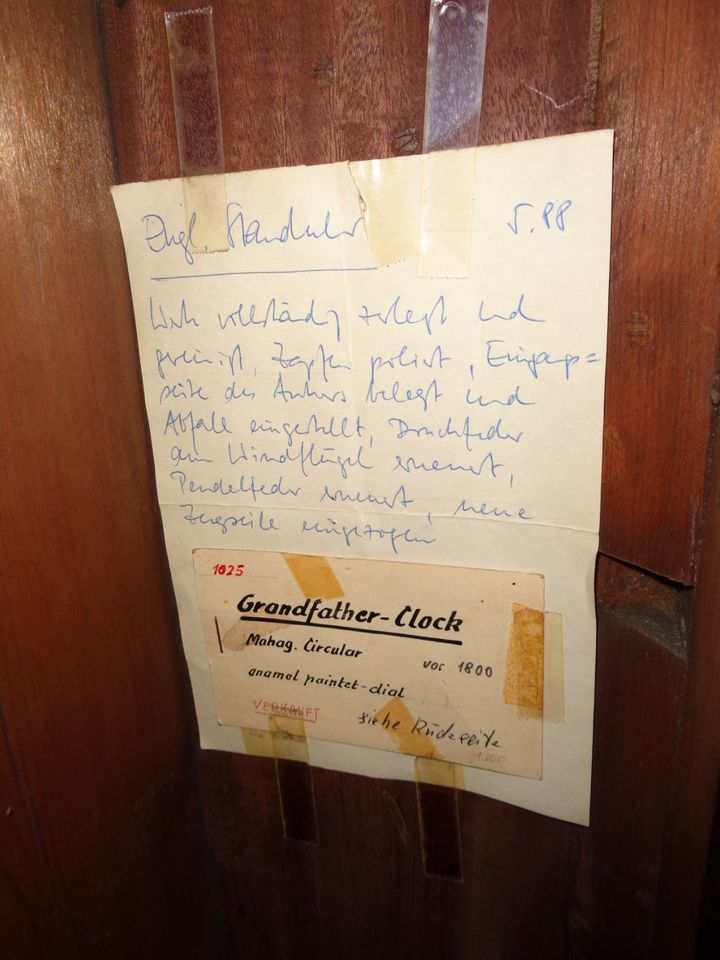 Engl. Standuhr 5.88
Werk vollständig zerlegt und
gereinigt, Zapfen poliert, Eingangs=
seite des Ankers belegt und
Abfall eingestellt, Druckfeder
am Windflügel erneuert,
Pendelfeder erneuert, neue
Zugseile eingezogen
1025
Grandfather-Clock
Mahag. Circular vor 1800
enamel paintet-dial
VERKAUFT siehe Rückseite
1300